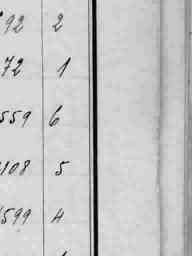 92 2
72 1
559 6
108 5
599 4